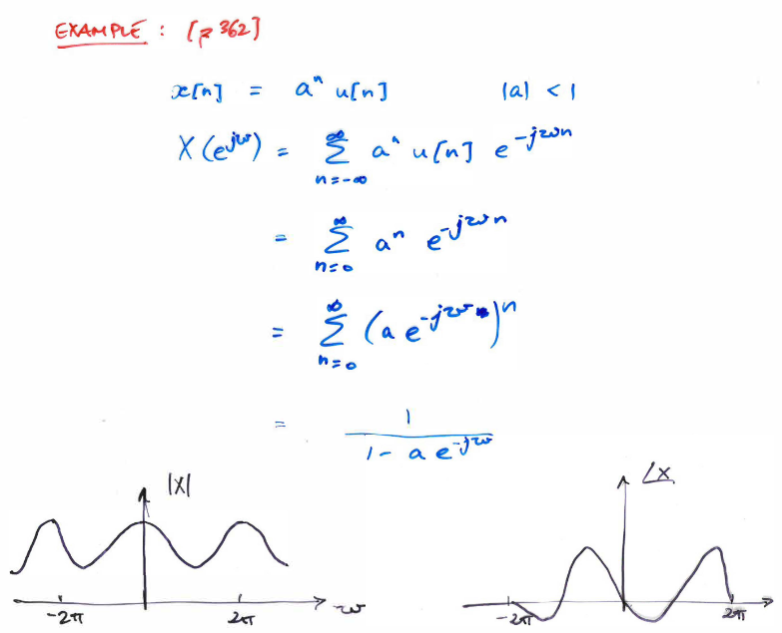 EXAMPLE : [p 362]
x[n] = aⁿ u[n] |a| < 1
X(e^{jω}) = ∑_{n=-∞}^{∞} aⁿ u[n] e^{-jωn}
= ∑_{n=0}^{∞} aⁿ e^{-jωn}
= ∑_{n=0}^{∞} (a e^{-jω})ⁿ
= 1 / (1 - a e^{-jω})
|X| ∠X
-2π 2π ω -2π 2π